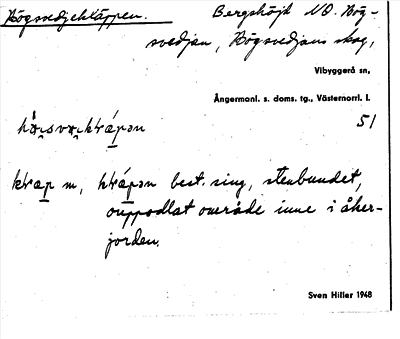 Högsvedjekläppen. Bergshöjd NO. Hög-
svedjan, Högsvedjans skog,
Vibyggerå sn,
Ångermanl. s. doms. tg., Västernorrl. l.
51
m, best. sing, stenbundet,
ouppodlat område inne i åker-
jorden.
Sven Hiller 1948